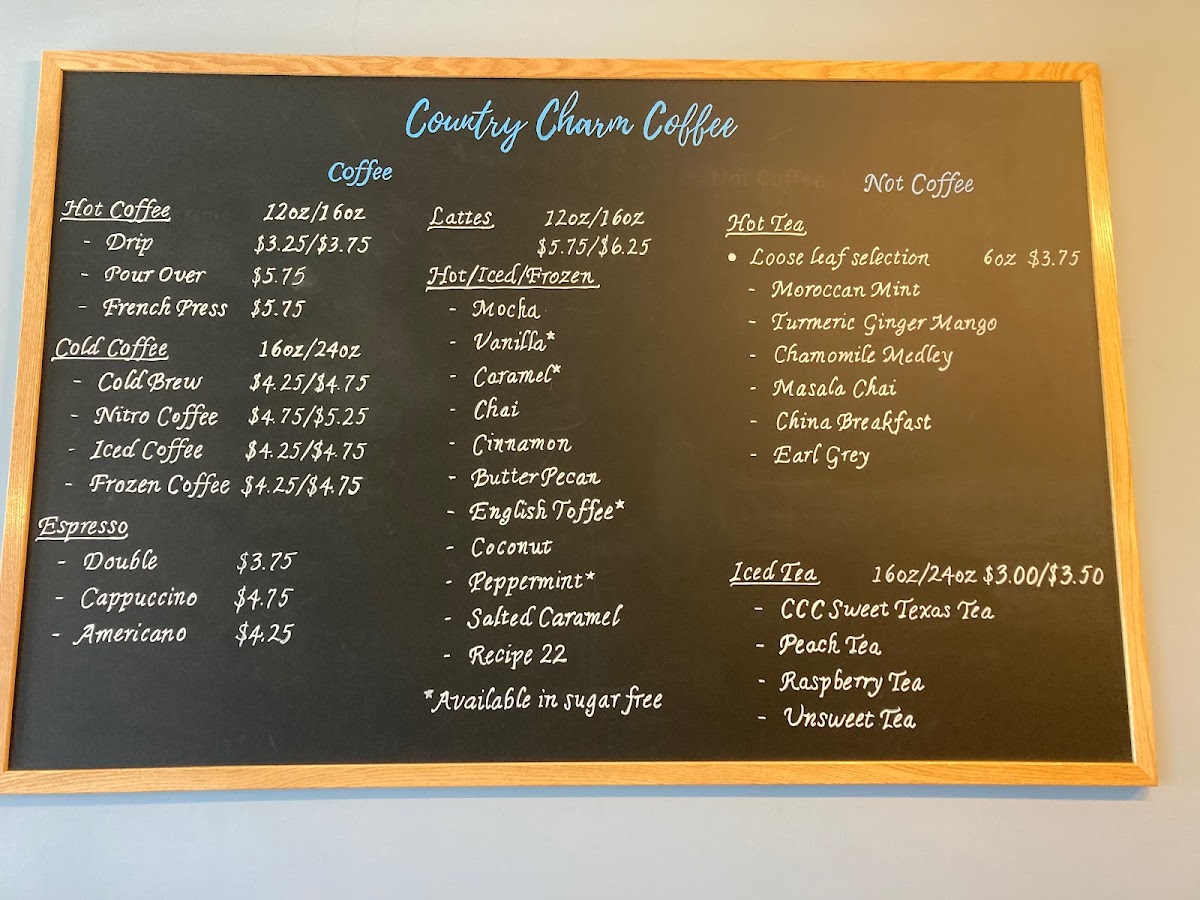 Country Charm Coffee
Coffee
Hot Coffee 12oz/16oz
- Drip $3.25/$3.75
- Pour Over $5.75
- French Press $5.75
Cold Coffee 16oz/24oz
- Cold Brew $4.25/$4.75
- Nitro Coffee $4.75/$5.25
- Iced Coffee $4.25/$4.75
- Frozen Coffee $4.25/$4.75
Espresso
- Double $3.75
- Cappuccino $4.75
- Americano $4.25
Lattes 12oz/16oz
$5.75/$6.25
Hot/Iced/Frozen
- Mocha
- Vanilla*
- Caramel*
- Chai
- Cinnamon
- Butter Pecan
- English Toffee*
- Coconut
- Peppermint*
- Salted Caramel
- Recipe 22
*Available in sugar free
Not Coffee
Hot Tea
• Loose leaf selection 6oz $3.75
- Moroccan Mint
- Turmeric Ginger Mango
- Chamomile Medley
- Masala Chai
- China Breakfast
- Earl Grey
Iced Tea 16oz/24oz $3.00/$3.50
- CCC Sweet Texas Tea
- Peach Tea
- Raspberry Tea
- Unsweet Tea